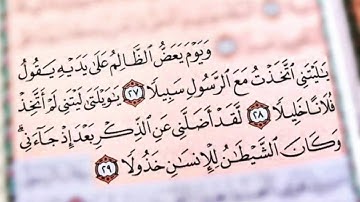 وَيَوْمَ يَعَضُّ ٱلظَّالِمُ عَلَىٰ يَدَيْهِ يَقُولُ
يَٰلَيْتَنِى ٱتَّخَذْتُ مَعَ ٱلرَّسُولِ سَبِيلًا ٢٧ يَٰوَيْلَتَىٰ لَيْتَنِى لَمْ أَتَّخِذْ
فُلَانًا خَلِيلًا ٢٨ لَّقَدْ أَضَلَّنِى عَنِ ٱلذِّكْرِ بَعْدَ إِذْ جَآءَنِى ۗ
وَكَانَ ٱلشَّيْطَٰنُ لِلْإِنسَٰنِ خَذُولًا ٢٩